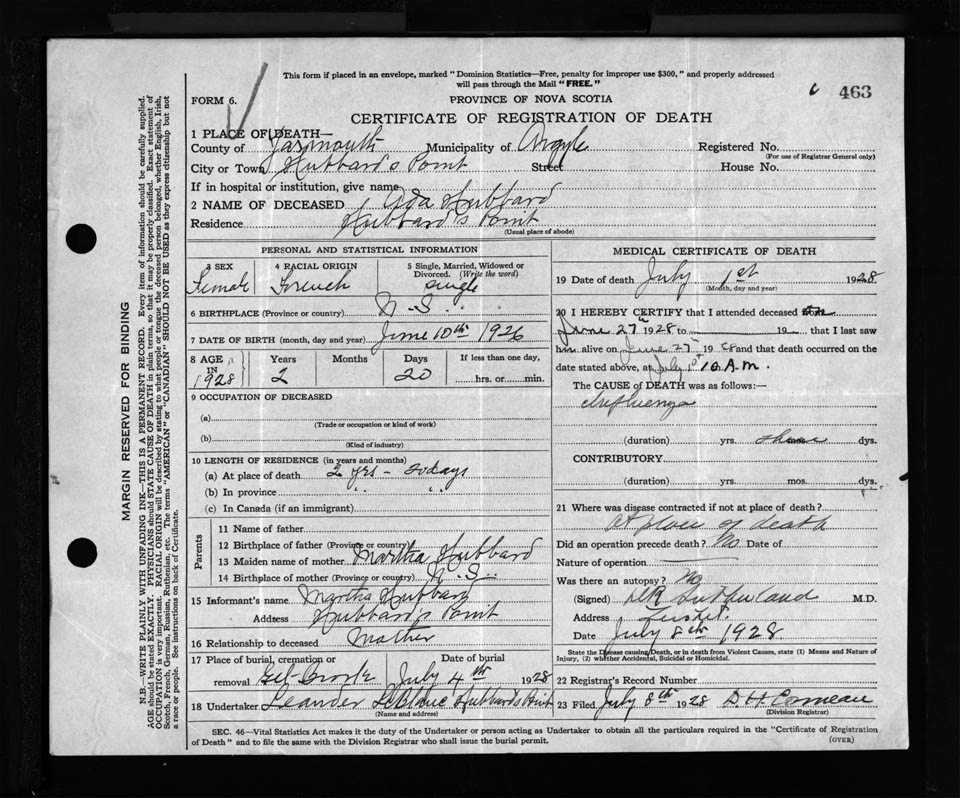 This form if placed in an envelope, marked "Dominion Statistics—Free, penalty for improper use $300," and properly addressed
will pass through the Mail "FREE."
463
FORM 6.
PROVINCE OF NOVA SCOTIA
CERTIFICATE OF REGISTRATION OF DEATH
1 PLACE OF DEATH—
County of Yarmouth Municipality of Argyle Registered No.
(For use of Registrar General only)
City or Town Hubbard's Point Street House No.
If in hospital or institution, give name
2 NAME OF DECEASED Ada Hubbard
Residence Hubbard's Point
(Usual place of abode)
PERSONAL AND STATISTICAL INFORMATION
3 SEX 4 RACIAL ORIGIN 5 Single, Married, Widowed or Divorced. (Write the word)
Female French single
6 BIRTHPLACE (Province or country) N.S.
7 DATE OF BIRTH (month, day and year) June 10th 1926
8 AGE IN 1928 Years 2 Months Days 20 If less than one day, hrs. or min.
9 OCCUPATION OF DECEASED
(a)
(Trade or occupation or kind of work)
(b)
(Kind of industry)
10 LENGTH OF RESIDENCE (in years and months)
(a) At place of death 2 yrs - 20 days
(b) In province " "
(c) In Canada (if an immigrant)
Parents
11 Name of father
12 Birthplace of father (Province or country)
13 Maiden name of mother Martha Hubbard
14 Birthplace of mother (Province or country) N.S.
15 Informant's name Martha Hubbard
Address Hubbard's Point
16 Relationship to deceased Mother
17 Place of burial, cremation or Date of burial
removal Eel Brook July 4th 1928
18 Undertaker Leander LeBlanc Hubbard's Point
(Name and address)
MEDICAL CERTIFICATE OF DEATH
19 Date of death July 1st 1928
(Month, day and year)
20 I HEREBY CERTIFY that I attended deceased
June 27th 1928 to 19 that I last saw
alive on June 27th 1928 and that death occurred on the
date stated above, at July 1st 10 A.M.
The CAUSE of DEATH was as follows:—
Influenza
(duration) yrs. dys.
CONTRIBUTORY
(duration) yrs. mos. dys.
21 Where was disease contracted if not at place of death?
At place of death
Did an operation precede death? No Date of
Nature of operation
Was there an autopsy? No
(Signed) Sutherland M.D.
Address Tusket
Date July 8th 1928
State the Disease causing Death, or in death from Violent Causes, state (1) Means and Nature of
Injury, (2) whether Accidental, Suicidal or Homicidal.
22 Registrar's Record Number
23 Filed July 8th 1928 D. H. Comeau
(Division Registrar)
SEC. 46—Vital Statistics Act makes it the duty of the Undertaker or person acting as Undertaker to obtain all the particulars required in the "Certificate of Registration
of Death" and to file the same with the Division Registrar who shall issue the burial permit.
(OVER)
MARGIN RESERVED FOR BINDING
N.B.—WRITE PLAINLY WITH UNFADING INK—THIS IS A PERMANENT RECORD. Every item of information should be carefully supplied.
AGE should be stated EXACTLY. PHYSICIANS should STATE CAUSE OF DEATH in plain terms, so that it may be properly classified. Exact statement of
OCCUPATION is very important. RACIAL ORIGIN will be described by stating to what people or tongue the deceased person belonged, whether English, Irish,
Scotch, French, German, Russian, Ruthenian, etc. The terms "AMERICAN" or "CANADIAN" SHOULD NOT BE USED as they express citizenship but not
a race or people. See instructions on back of Certificate.